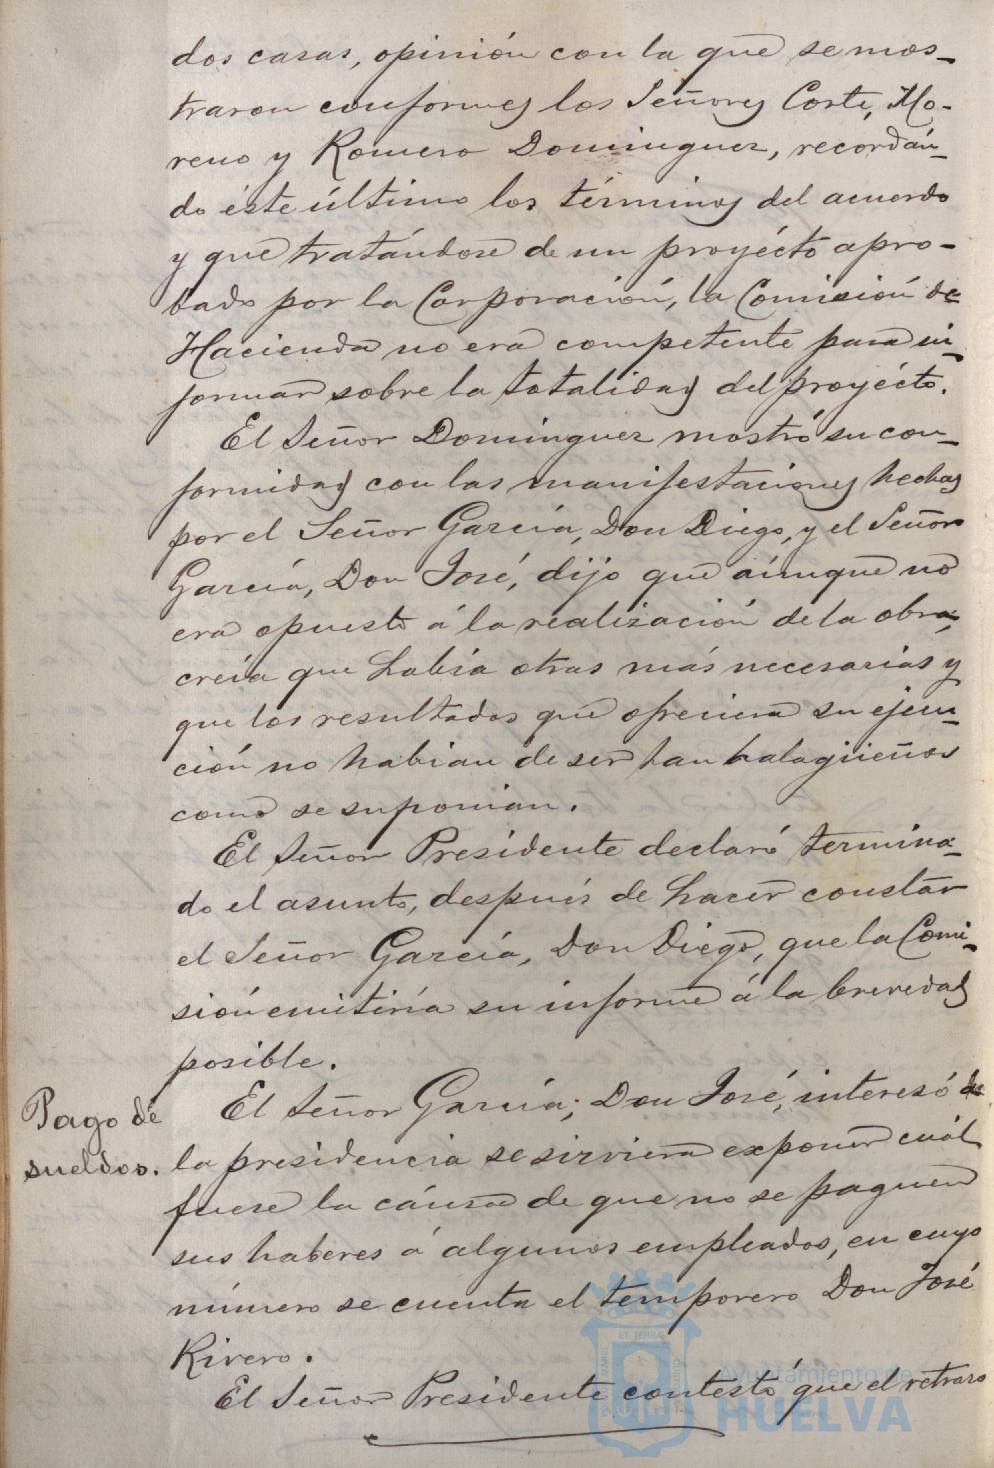 dos casas, opinión con la que se mos-
traron conformes los Señores Corte, Mo-
reno y Romero Dominguez, recordán-
do éste último los términos del acuerdo
y que tratándose de un proyécto apro-
bado por la Corporación, la Comisión de
Hacienda no era competente para in-
formar sobre la totalidad del proyécto.
El Señor Dominguez mostró su con-
formidad con las manifestaciones hechas
por el Señor García, Don Diego, y el Señor
García, Don José, dijo que aúnque no
era opuesto á la realización de la obra,
creía que había otras más necesarias y
que los resultados que ofreciera su ejecu-
ción no habían de ser tan halagüeños
como se suponian.
El Señor Presidente declaró termina-
do el asunto, después de hacer constar
el Señor García, Don Diego, que la Comi-
sión emitiría su informe á la brevedad
posible.
Pago de
sueldos.
El Señor García, Don José, interesó de
la presidencia se sirviera exponer cuál
fuese la cáusa de que no se paguen
sus haberes á algunos empleados, en cuyo
número se cuenta el temporero Don José
Rivero.
El Señor Presidente contestó que el retraso
Ayuntamiento de
HUELVA